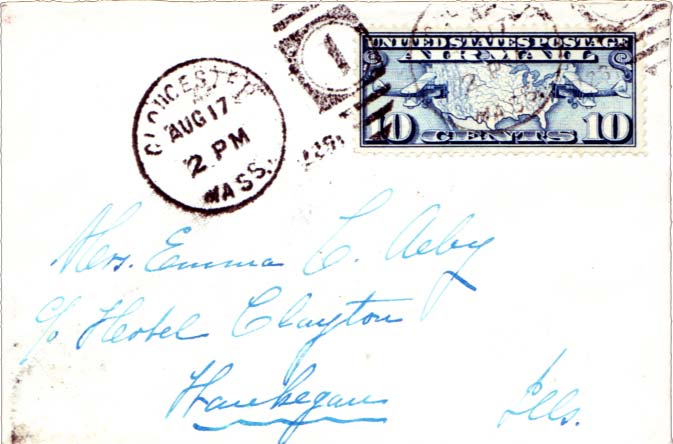 GLOUCESTER
AUG 17
2 PM
MASS.
1
UNITED STATES POSTAGE
AIR MAIL
10 CENTS 10
Mrs. Emma C. Aeby
c/o Hotel Clayton
Waukegan Ills.